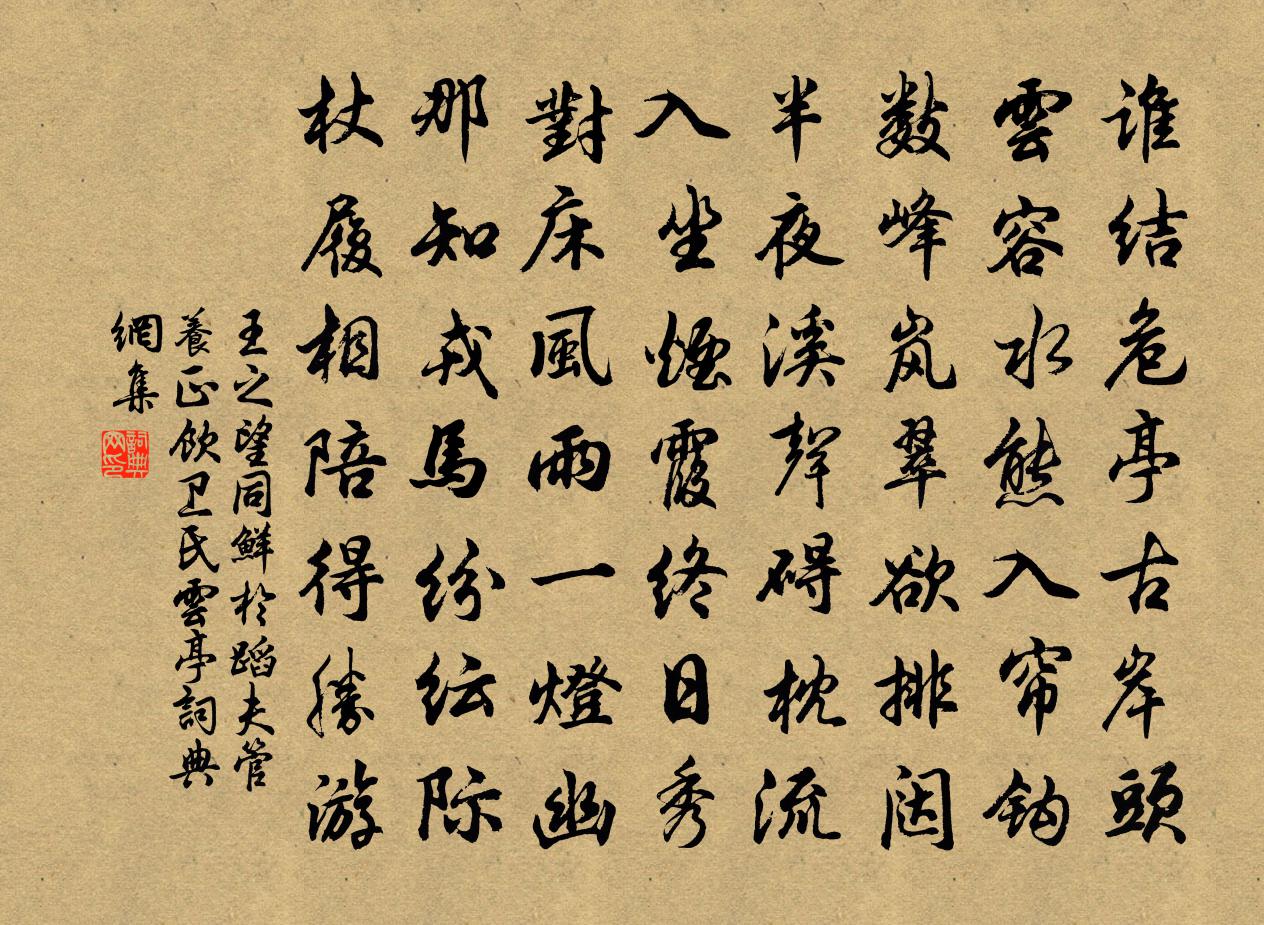 谁结危亭古岸頭
雲容水態入帘钩
数峰岚翠欲排闼
半夜溪聲碍枕流
入坐煙霞終日秀
對床風雨一燈幽
那知戎馬纷纭际
杖履相陪得勝游
王之望同鮮於蹈夫管
養正飲卫氏雲亭詞典
網集
詞典网印